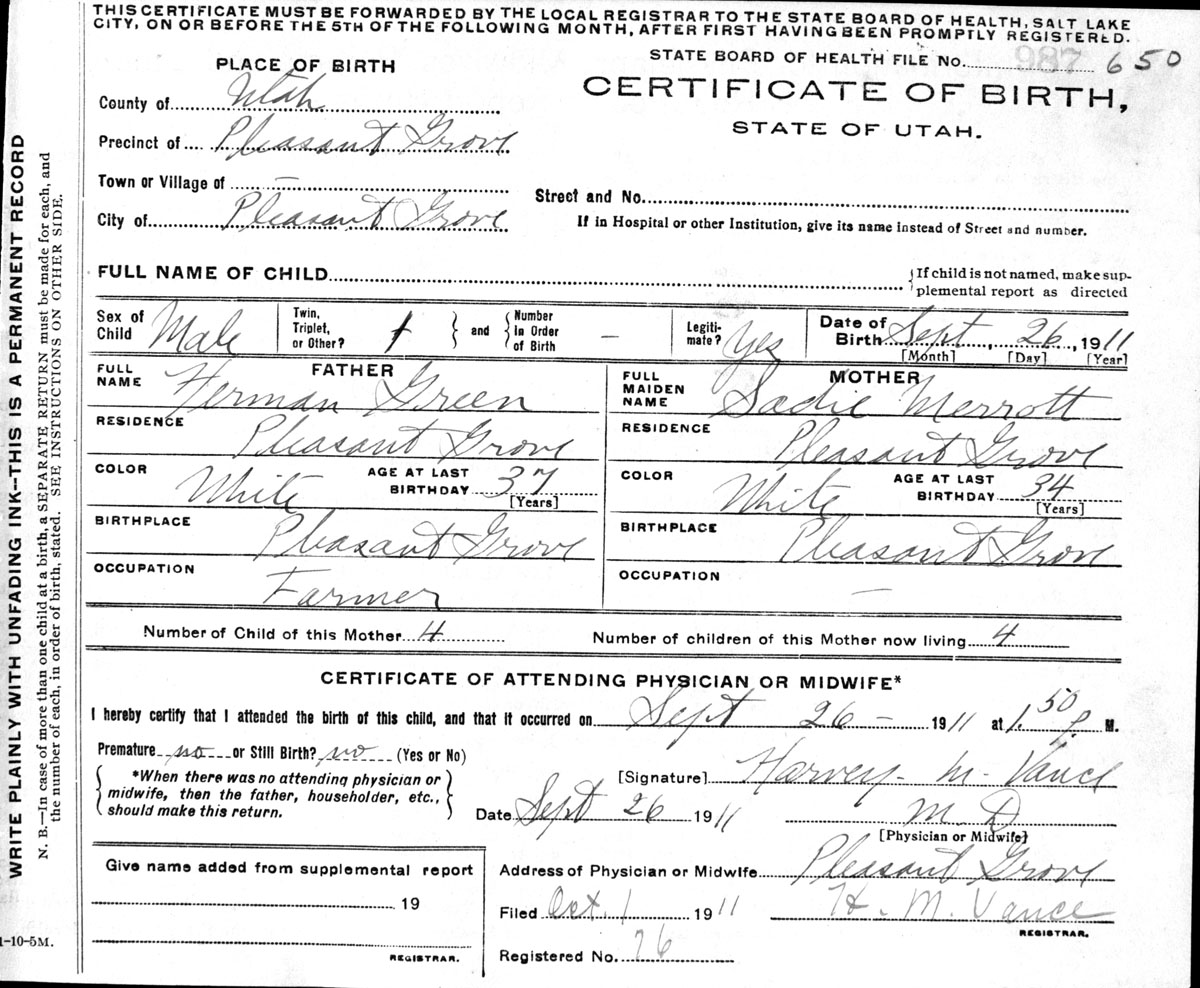 THIS CERTIFICATE MUST BE FORWARDED BY THE LOCAL REGISTRAR TO THE STATE BOARD OF HEALTH, SALT LAKE
CITY, ON OR BEFORE THE 5TH OF THE FOLLOWING MONTH, AFTER FIRST HAVING BEEN PROMPTLY REGISTERED.
STATE BOARD OF HEALTH FILE No. 987 650
PLACE OF BIRTH
CERTIFICATE OF BIRTH,
STATE OF UTAH.
County of Utah
Precinct of Pleasant Grove
Town or Village of —
Street and No.
City of Pleasant Grove
If in Hospital or other Institution, give its name instead of Street and number.
FULL NAME OF CHILD
{If child is not named, make sup-
plemental report as directed
Sex of Child Male
Twin, Triplet, or Other? } and { Number In Order of Birth —
Legiti-mate? Yes
Date of Birth Sept, 26, 1911
[Month] [Day] [Year]
FATHER
FULL NAME Herman Green
RESIDENCE Pleasant Grove
COLOR White AGE AT LAST BIRTHDAY 37
[Years]
BIRTHPLACE Pleasant Grove
OCCUPATION Farmer
MOTHER
FULL MAIDEN NAME Sadie Merrott
RESIDENCE Pleasant Grove
COLOR White AGE AT LAST BIRTHDAY 34
[Years]
BIRTHPLACE Pleasant Grove
OCCUPATION —
Number of Child of this Mother 4 Number of children of this Mother now living 4
CERTIFICATE OF ATTENDING PHYSICIAN OR MIDWIFE*
I hereby certify that I attended the birth of this child, and that it occurred on Sept 26 – 1911 at 1.50 P. M.
Premature no or Still Birth? no (Yes or No)
{ *When there was no attending physician or
midwife, then the father, householder, etc.,
should make this return. }
[Signature] Harvey M. Vance
Date Sept 26 1911 M. D
[Physician or Midwife]
Give name added from supplemental report
19
REGISTRAR.
Address of Physician or Midwife Pleasant Grove
Filed Oct. 1 1911 H. M. Vance
REGISTRAR.
Registered No. 76
1-10-5M.
WRITE PLAINLY WITH UNFADING INK--THIS IS A PERMANENT RECORD
N. B.—In case of more than one child at a birth, a SEPARATE RETURN must be made for each, and
the number of each, in order of birth, stated. SEE INSTRUCTIONS ON OTHER SIDE.